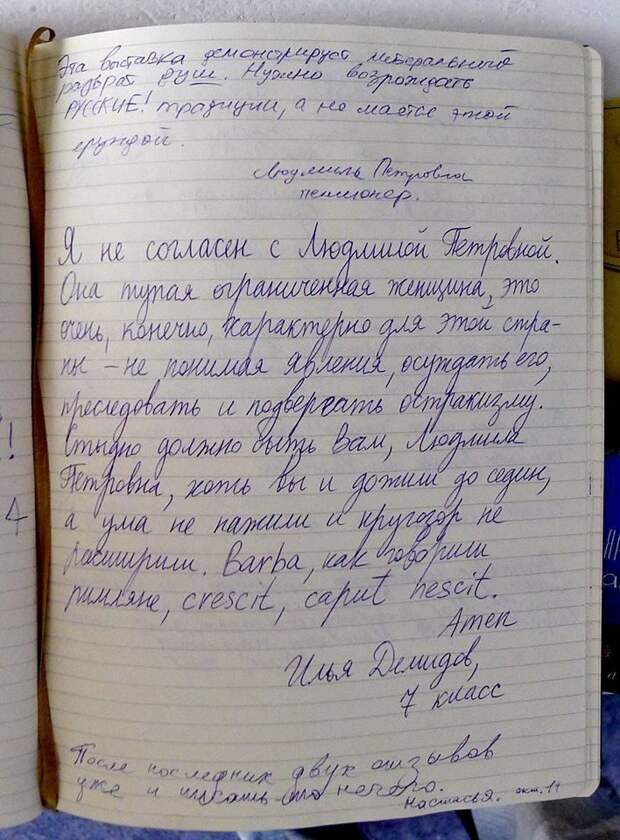 Эта выставка демонстрирует либеральный
разврат душ. Нужно возрождать
РУССКИЕ! традиции, а не маятся этой
ерундой.
Людмила Петровна
пенсионер.
Я не согласен с Людмилой Петровной.
Она тупая ограниченная женщина, это
очень, конечно, характерно для этой стра-
ны – не понимая явления, осуждать его,
преследовать и подвергать остракизму.
Стыдно должно быть Вам, Людмила
Петровна, хоть вы и дожили до седин,
а ума не нажили и кругозор не
расширили. Barba, как говорили
римляне, crescit, caput nescit.
Amen
Илья Демидов,
7 класс
После последних двух отзывов
уже и писать-то нечего.
Настасья.
4
!